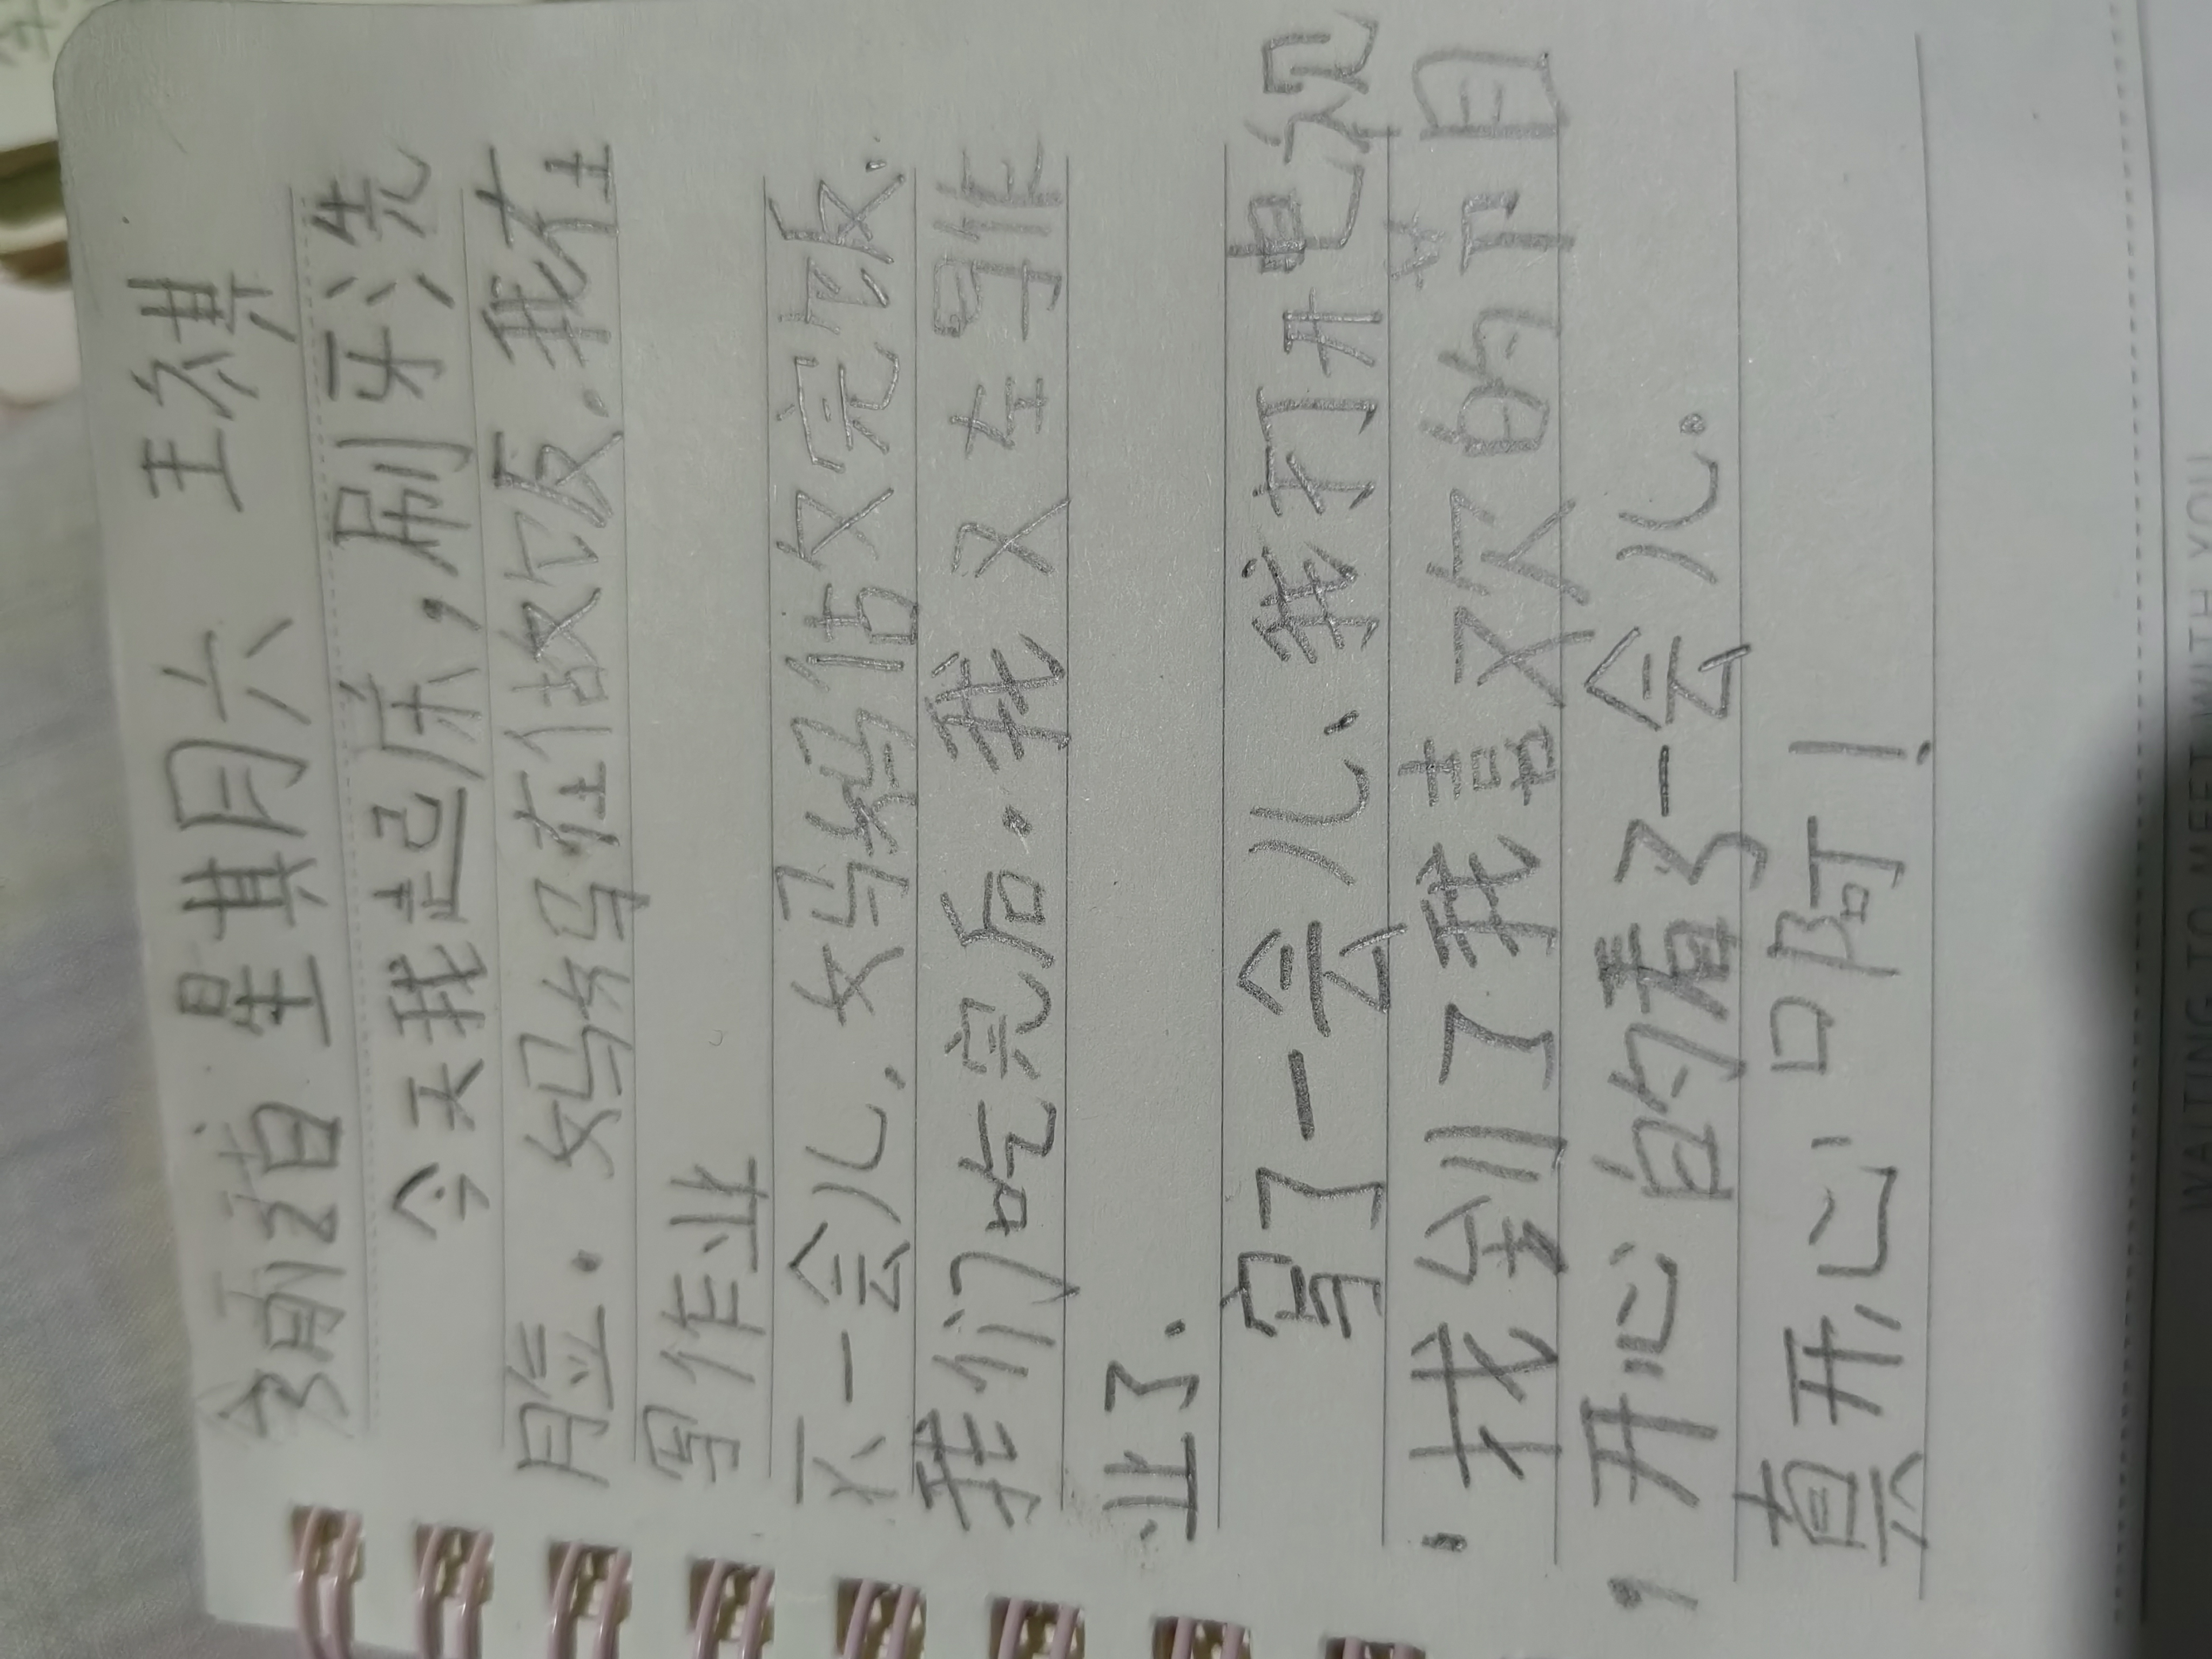 星期六 王
今天我起床,刷牙洗
脸.妈妈在做饭.我在
写作业
不一会儿.妈妈做完饭.
我们吃完后.我又在写作
业了.
写了一会儿、我打开电视
,找到了我喜欢的节目
,开心的看了一会儿.
真开心啊!
WAITING TO MEET WITH YOU